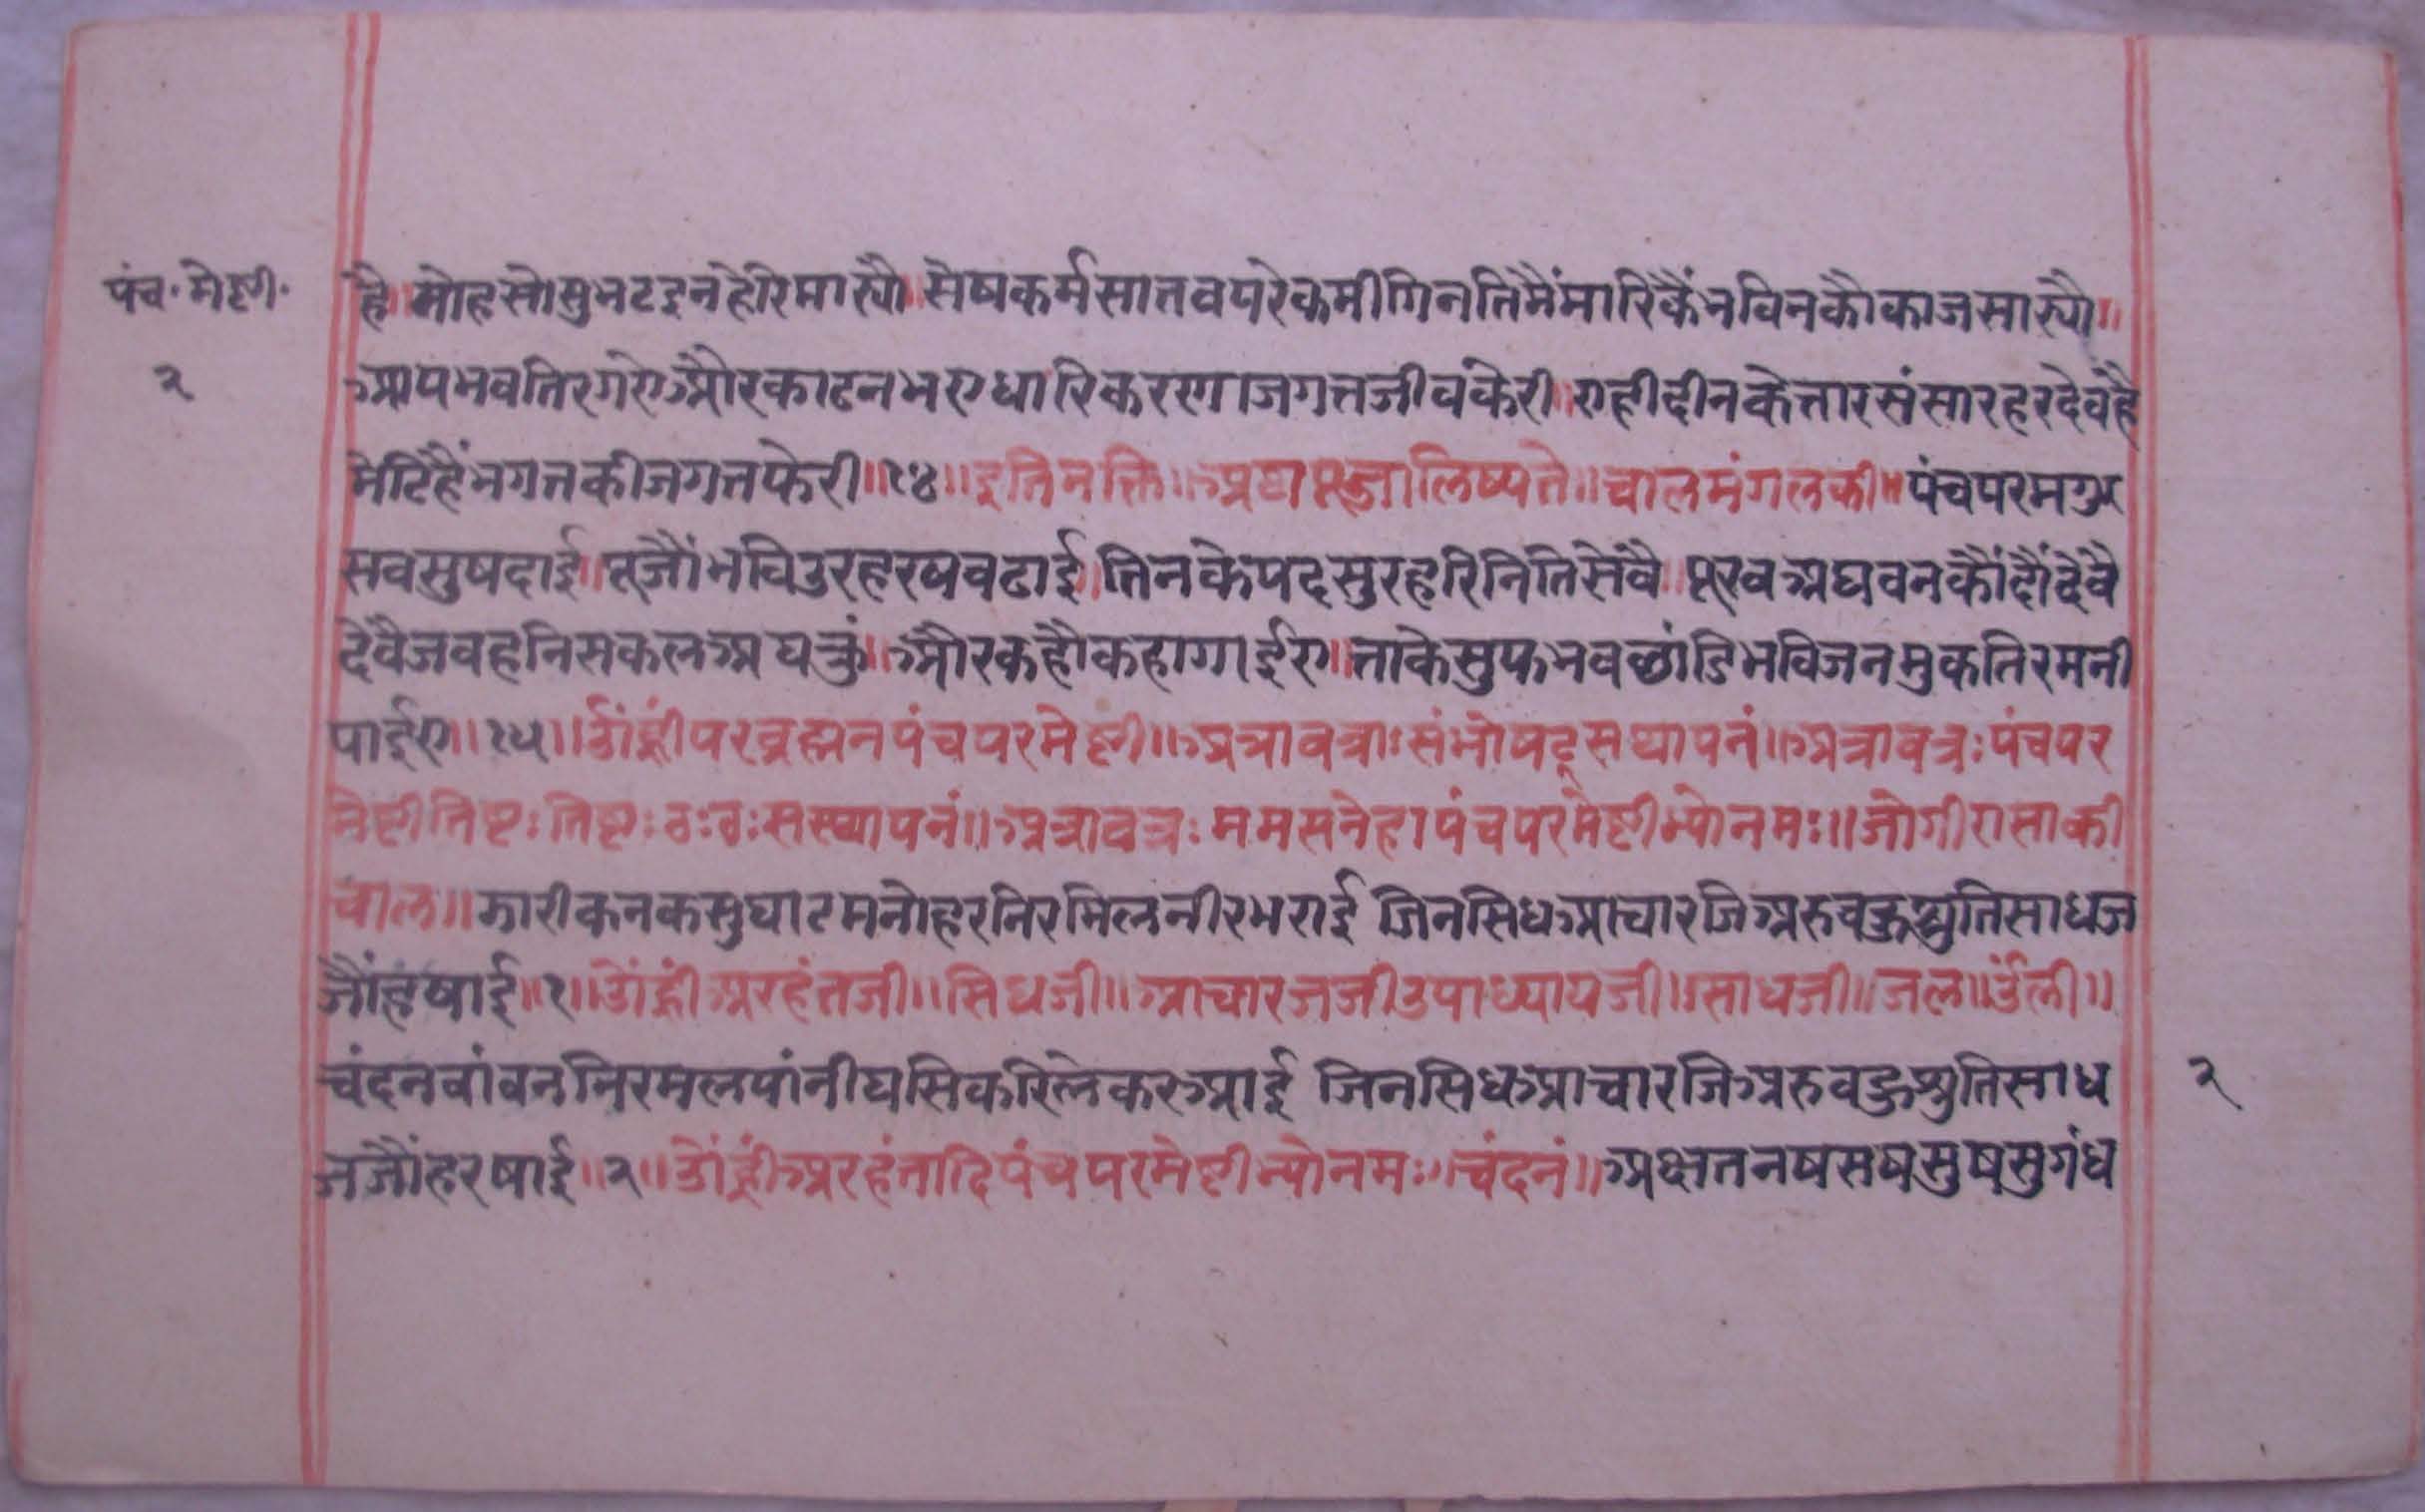 पंच॰मेष्टी॰
२
है॥मोहसोसुभटइनहेरिमास्यौ॥सेषकर्मसातवपरेकमीगिनतिमैंमारिकैंनविनकौकाजसास्यौ॥
आपभवतिरगरेऔरकाढनभएधारिकरणाजगतजीवकेरी॥एहीदीनकेतारसंसारहरदेवहै
मेटिहैंभगतकीजगतफेरी॥१४॥इतिभक्ति॥अथपूजालिष्यते॥चालमंगलकी॥पंचपरमगुर
सवसुषदाई॥पूजौंभविउरहरषवढाई॥तिनकेपदसुरहरिनितिसेवै॥पूरवअघवनकौंदौंदेवै
देवैजवहनिसकलअघकुं॥औरकहौकहागाईए॥ताकेसुफभवछांडिभविजनमुकतिरमनी
पाईए॥१५॥ओंह्रींपरब्रह्मनपंचपरमेष्टी॥अत्रावत्राःसंभोषट्सथापनं॥अत्रावत्रःपंचपर
मेष्टीतिष्टःतिष्टःठःठःसस्थापनं॥अत्रावत्रःममसनेहापंचपरमेष्टीभ्योनमः॥जोगीरासाकी
चाल॥झारीकनकसुघाटमनोहरनिरमिलनीरभराई जिनसिधआचारजिअरुवहुश्रुतिसाधज
जौंहरषाई॥१॥ओंह्रींअरहंतजी॥सिधजी॥आचारजजीउपाध्यायजी॥साधजी॥जल॥
चंदनवांवननिरमलपांनीघसिकरिलेकरआई जिनसिधआचारजिअरुवहुश्रुतिसाध
२
जजौंहरषाई॥२॥ओंह्रींअरहंतादिपंचपरमेष्टीभ्योनमः॥चंदनं॥अक्षतनषसषसुषसुगंध